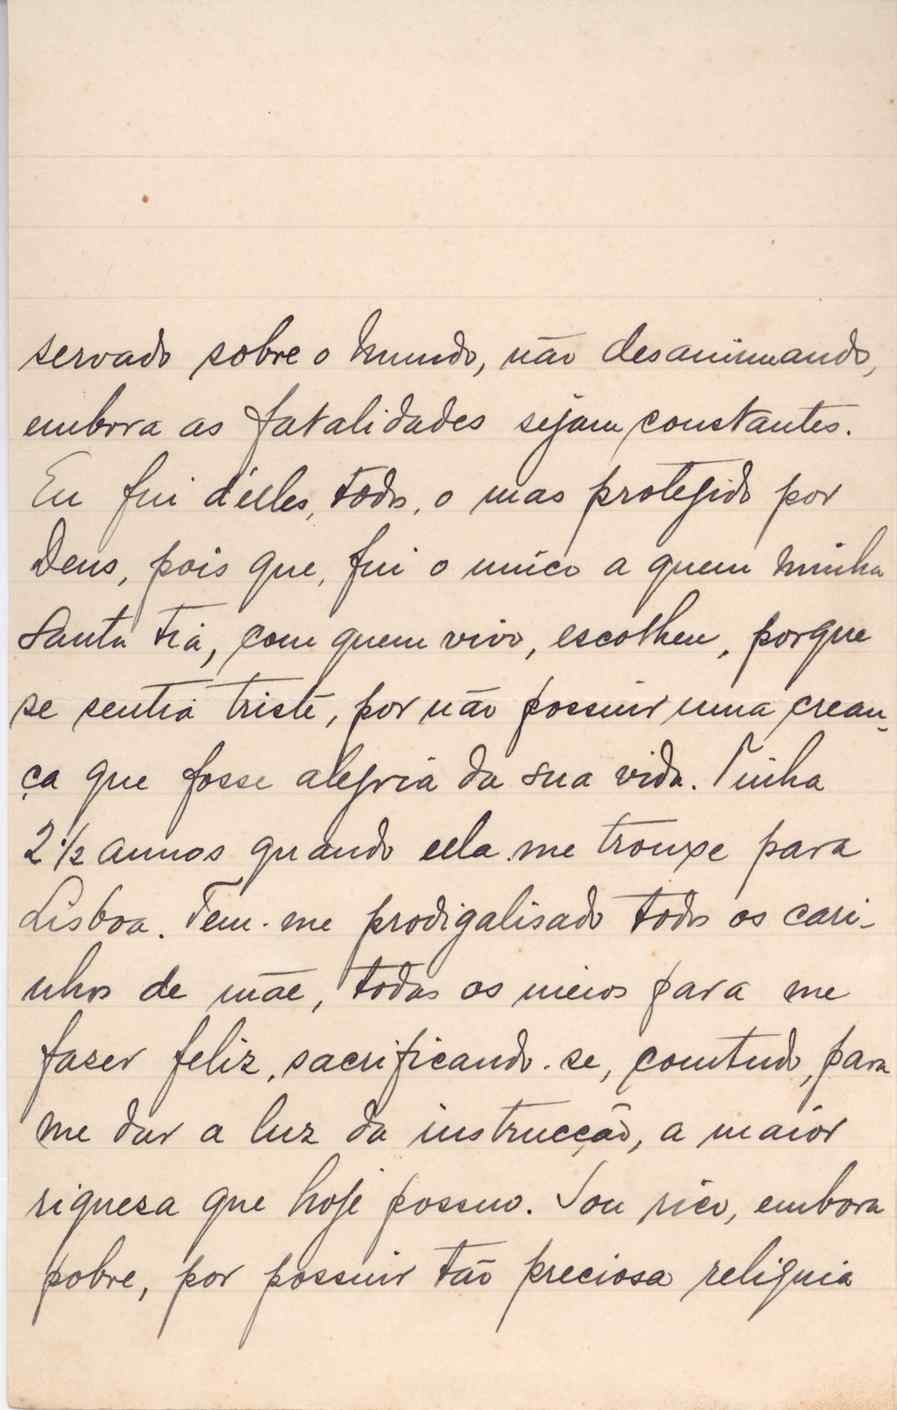 servado sobre o Mundo, não desanimando,
embora as fatalidades sejam constantes.
Eu fui d'elles, todos, o mas protegido por
Deus, pois que, fui o unico a quem minha
Santa Tia, com quem vivo, escolheu, porque
se sentia triste, por não possuir uma crean-
ça que fosse alegria da sua vida. Tinha
2 1/2 annos quando ella me trouxe para
Lisboa. Tem-me prodigalisado todos os cari-
nhos de mãe, todos os meios para me
faser feliz, sacrificando-se, comtudo, para
me dar a luz da instrucção, a maior
riquesa que hoje possuo. Sou rico, embora
pobre, por possuir tão preciosa reliquia